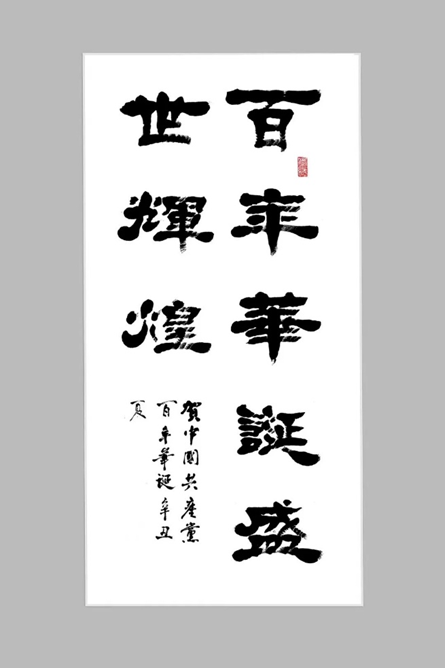 百年華誕盛
世輝煌
賀中國共產黨
百年華誕辛丑
夏